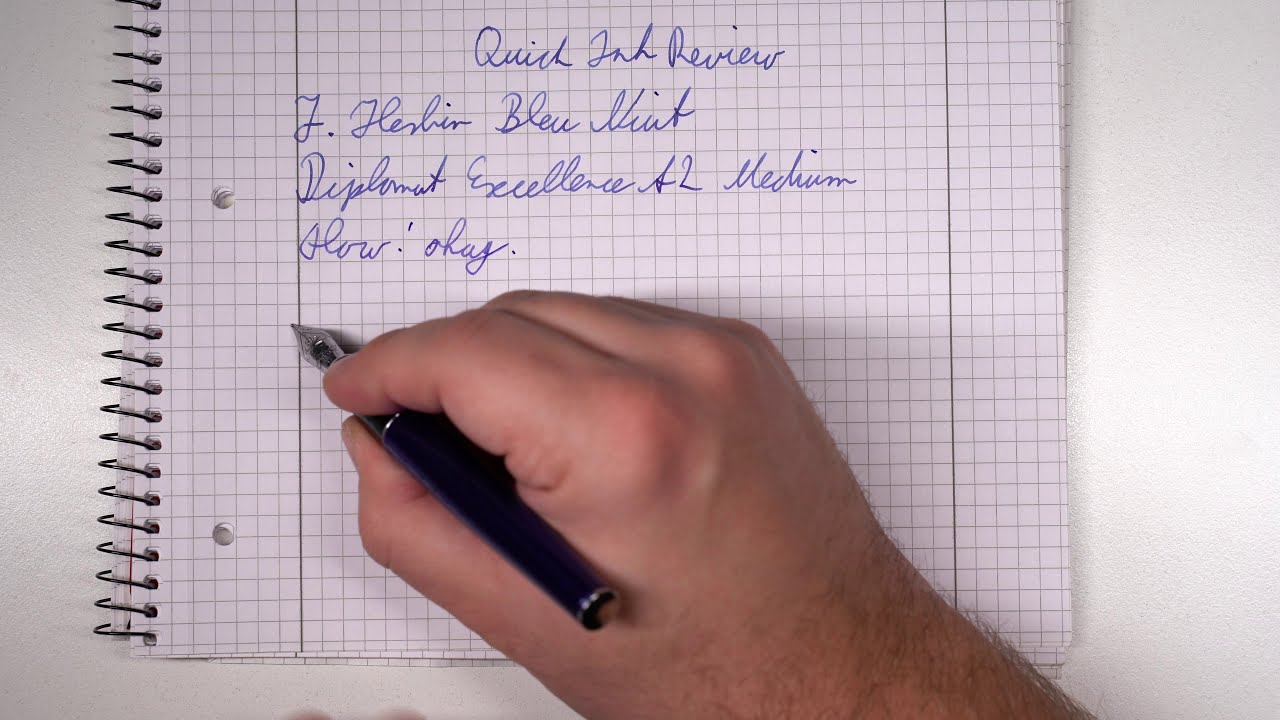 Quick Ink Review
J. Herbin Bleu Nuit
Diplomat Excellence A2 Medium
Flow: okay.